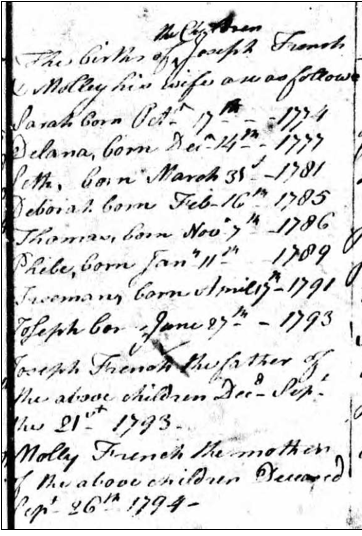 the Children
The births of Joseph French
& Molley his wife are as follows
Sarah born Octr 17th - - 1774
Delana, born Decr 14th - 1777
Seth, born March 31st - 1781
Deborah born Feb - 16th 1785
Thomas, born Novr 7th - 1786
Phebe, born Janr 11th 1789
Freeman, born April 17th - 1791
Joseph bor June 27th - 1793
Joseph French the father of
the above children Decd Sept
the 21st 1793 -
Molly French the mother
of the above children Deceased
Sept 26th 1794 -